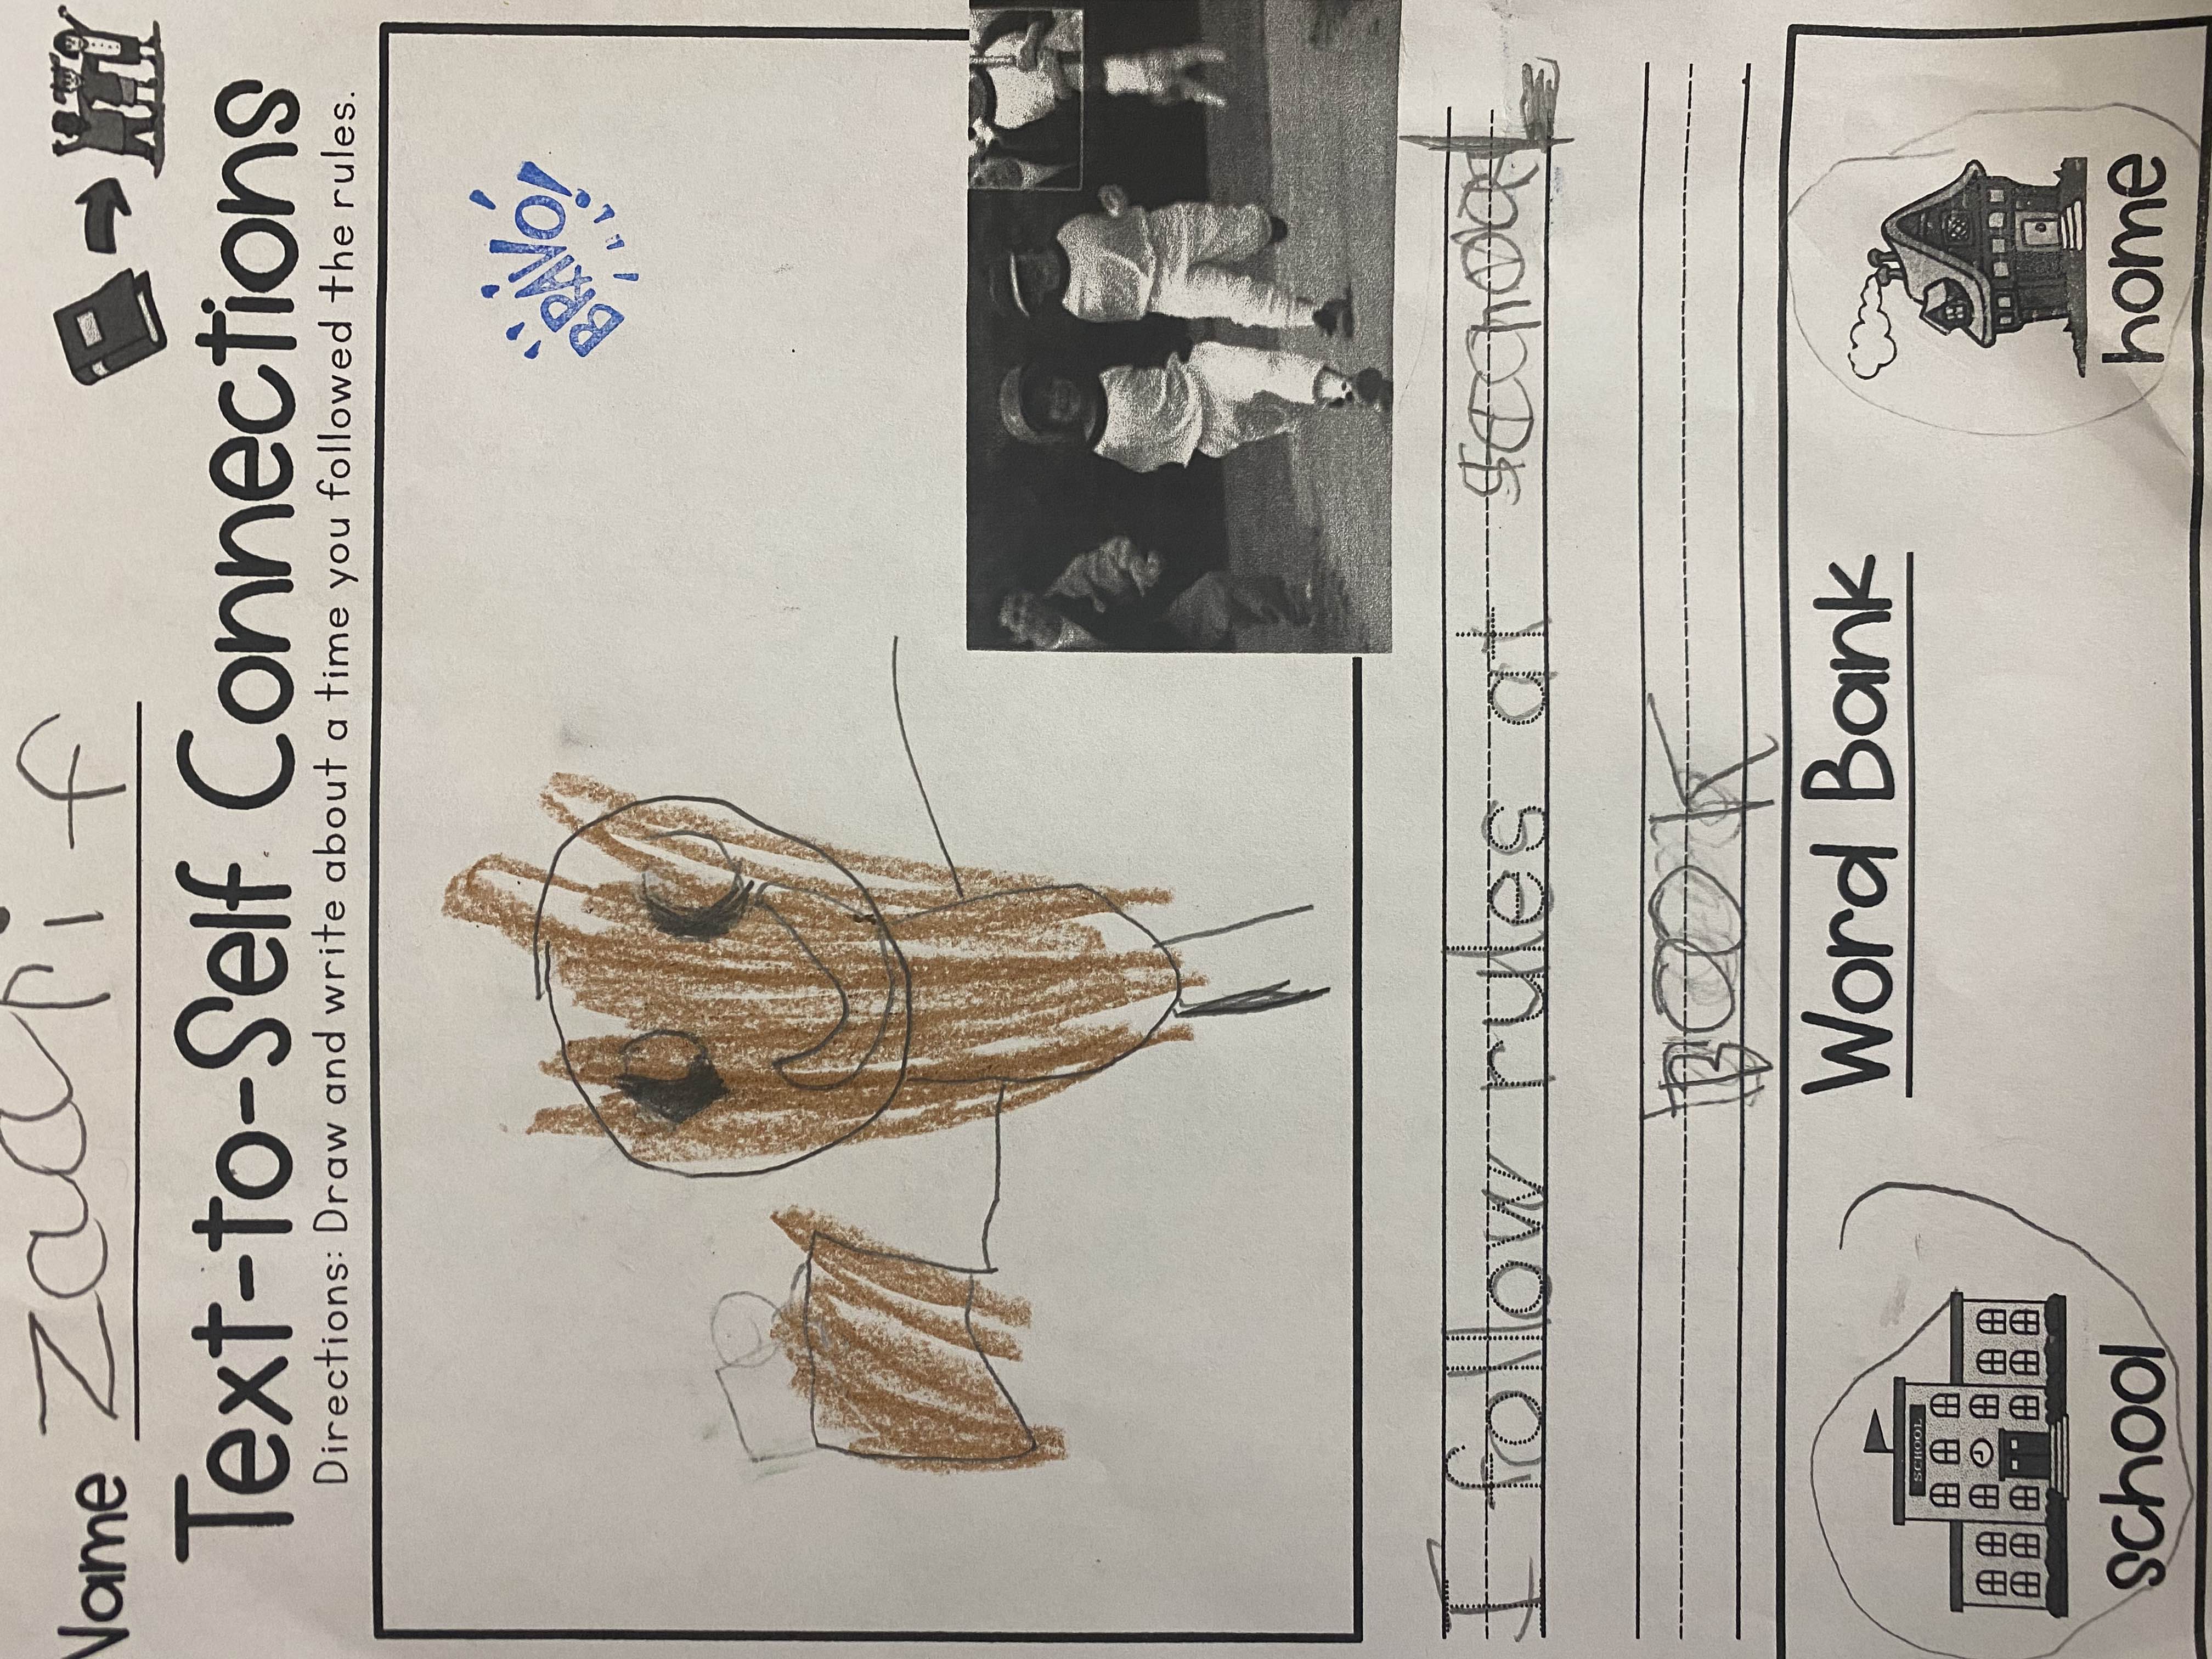 Name zaarif
Text-to-Self Connections
Directions: Draw and write about a time you followed the rules.
BRAVO!
I follow rules at school
BOOK
Word Bank
SCHOOL
school
home